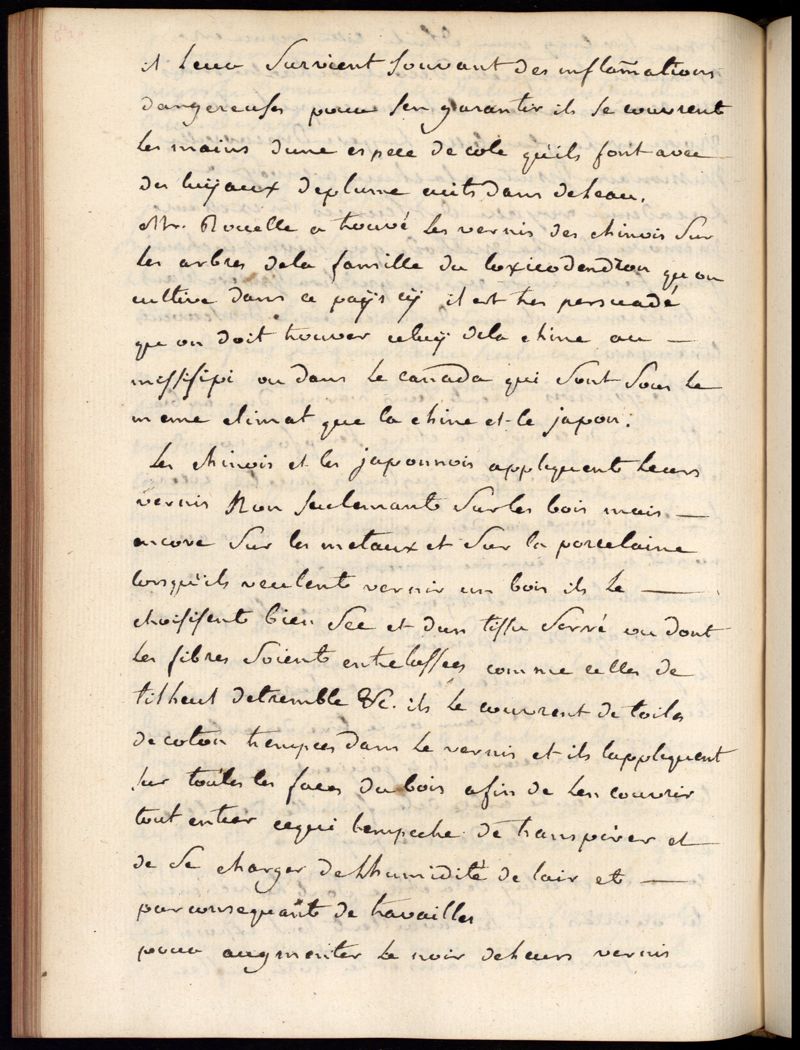 il leur survient souvant des inflam̃ations
dangereuses pour sen garantir ils se couvrent
les mains dune espece de cole quils font avec
des tuÿaux deplume cuits dans deleau.
Mr. Rouelle a trouvé les vernis des chinois sur
les arbres dela famille du toxicodendron quon
cultive dans ce paÿs cÿ il est tres persuadé
que on doit trouver celuÿ dela chine au —
missisipi ou dans le canada qui sont sous le
meme climat que la chine et le japon.
Les chinois et les japonnois appliquent leurs
vernis Non seulemant sur les bois mais —
encore sur les metaux et sur la porcelaine
lorsquils veulent vernir un bois ils le —
choisissent bien sec et dun tissu serré ou dont
les fibres soient entrelassées comme celles de
tilheul detremble &c. ils le couvrent de toiles
de coton trempées dans le vernis et ils lappliquent
sur toutes les faces du bois afin de len couvrir
tout entier cequi lempeche de transpirer et
de se charger delhumidité de lair et —
parconsequant de travailler
pour augmenter le noir deleurs vernis